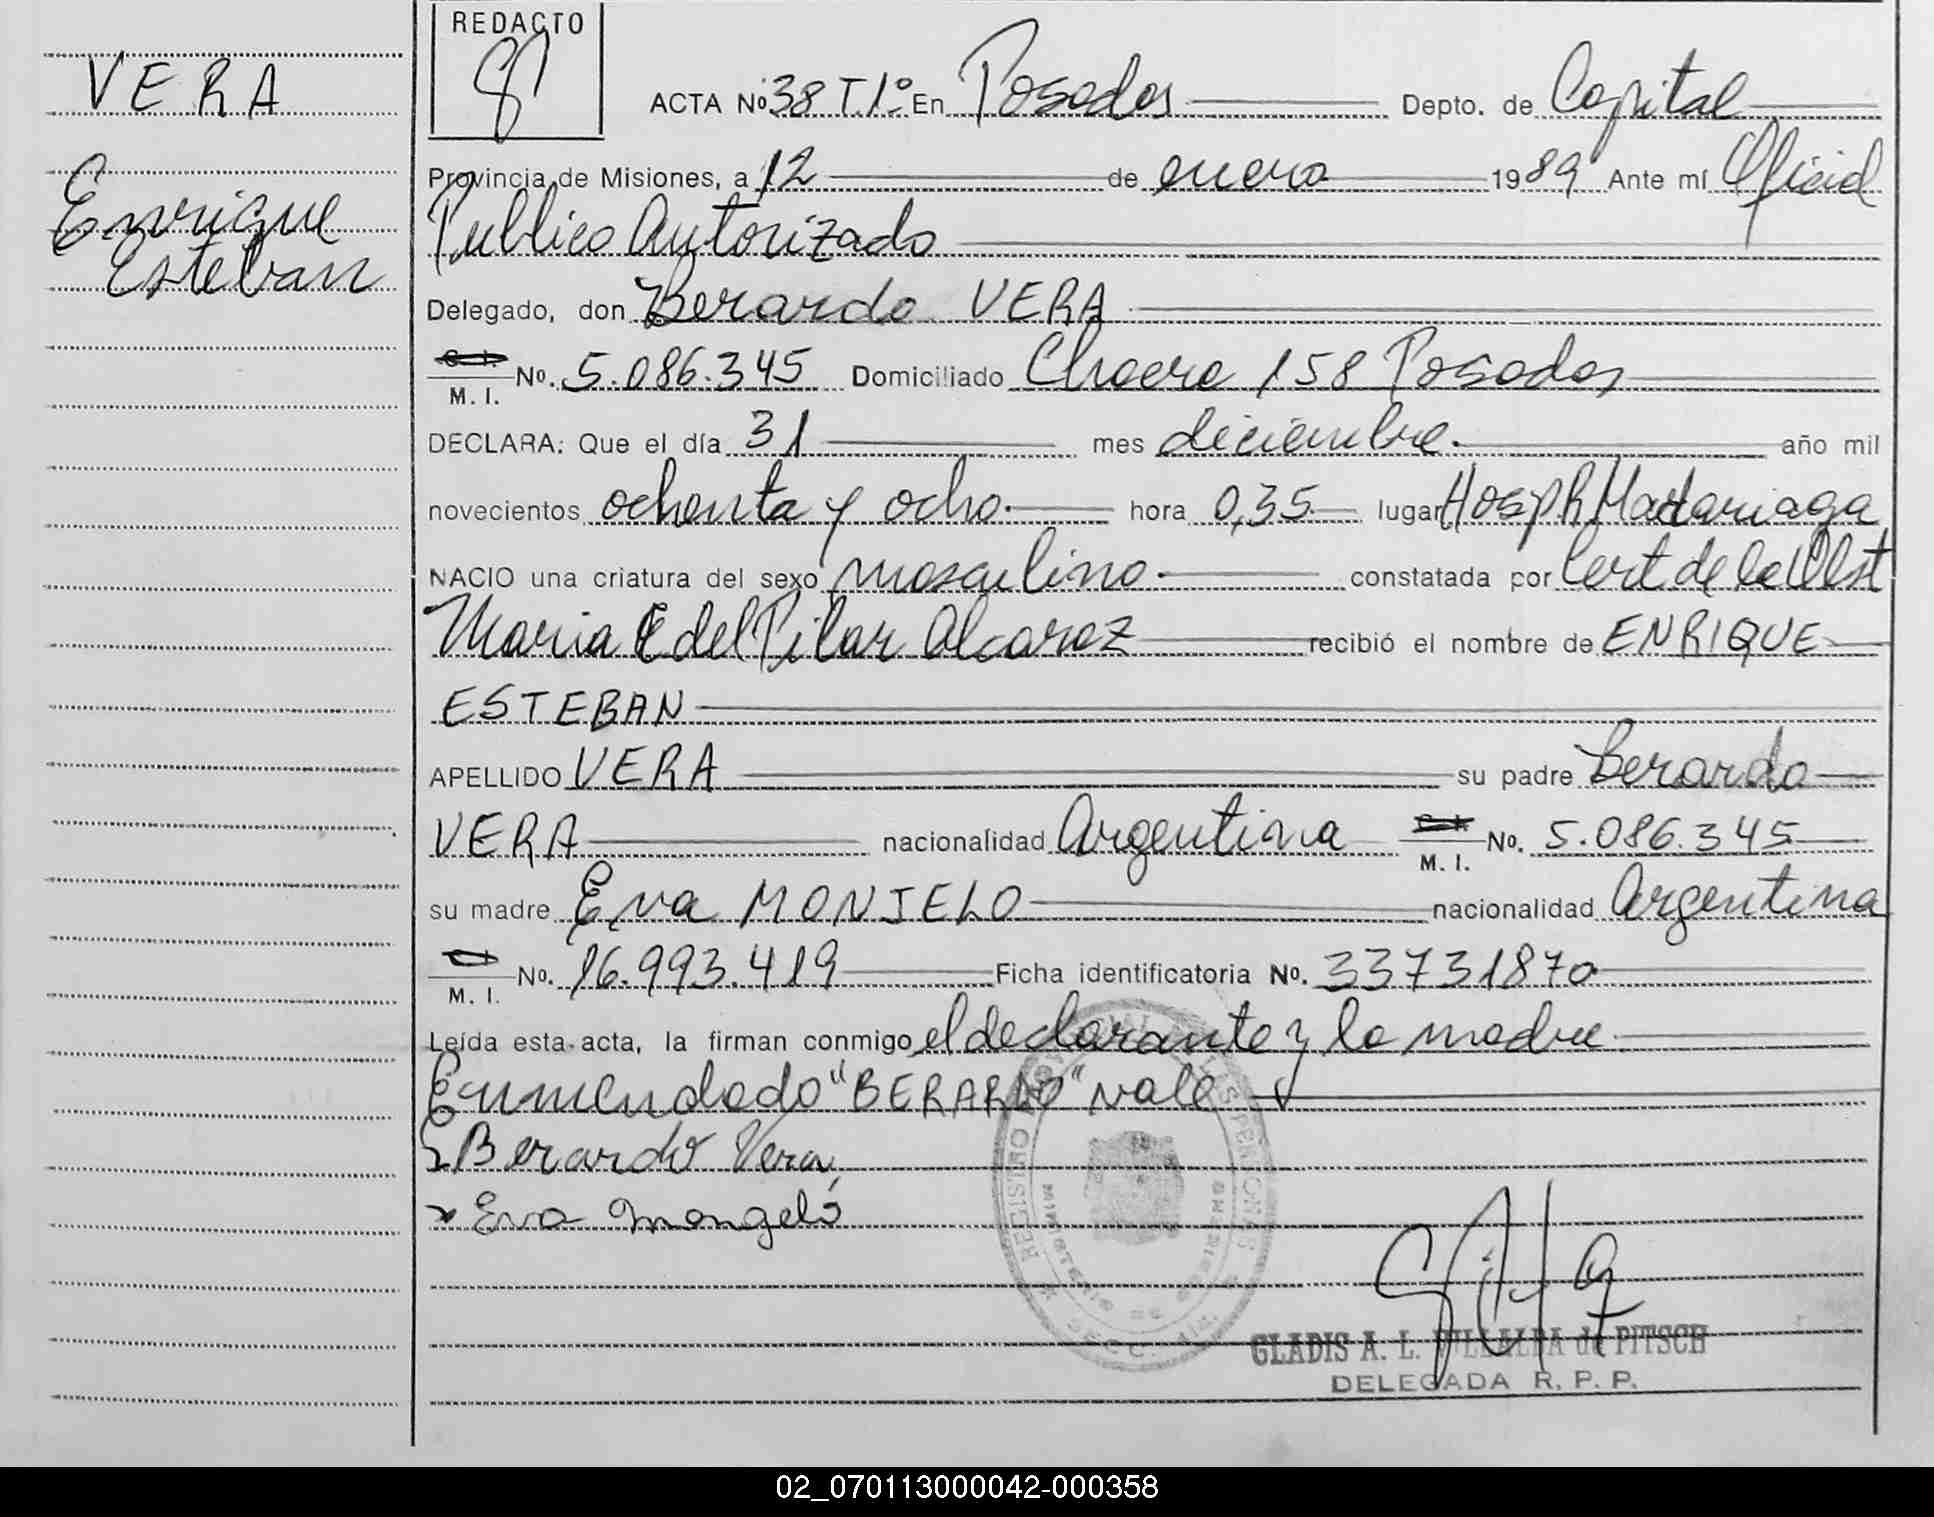 VERA
Enrique
Esteban
REDACTO
ACTA No 38 T.1º En Posadas Depto. de Capital
Provincia de Misiones, a 12 de enero 1989 Ante mí Oficial
Publico Autorizado
Delegado, don Berardo VERA
M. I. No. 5.086.345 Domiciliado Chacra 158 Posadas
DECLARA: Que el día 31 mes diciembre. año mil
novecientos ochenta y ocho. hora 0,35 lugar Hosp R Madariaga
NACIO una criatura del sexo masculino. constatada por Cert de la Obst
Maria E del Pilar Alcaraz recibió el nombre de ENRIQUE
ESTEBAN
APELLIDO VERA su padre Berardo
VERA nacionalidad Argentina M. I. No. 5.086.345
su madre Eva MONJELO nacionalidad Argentina
M. I. No. 16.993.419 Ficha identificatoria No. 33731870
Leída esta acta, la firman conmigo el declarante y la madre
Enmendado "BERARDO" vale
Berardo Vera
x Eva Mongeló
REGISTRO PERSONAS
MINISTERIO DE GOBIERNO
GLADIS A. L. VILLALBA de PITSCH
DELEGADA R. P. P.
02_070113000042-000358